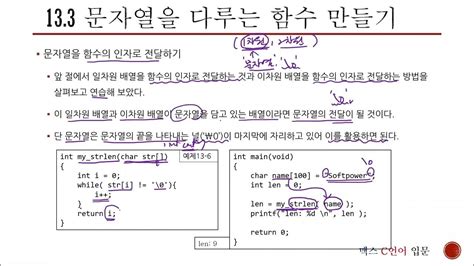 13.3 문자열을 다루는 함수 만들기
(1차원, 2차원)
문자열
▪ 문자열을 함수의 인자로 전달하기
▪ 앞 절에서 일차원 배열을 함수의 인자로 전달하는 것과 이차원 배열을 함수의 인자로 전달하는 방법을
살펴보고 연습해 보았다.
▪ 이 일차원 배열과 이차원 배열이 문자열을 담고 있는 배열이라면 문자열의 전달이 될 것이다.
▪ 단 문자열은 문자열의 끝을 나타내는 널('₩0')이 마지막에 자리하고 있어 이를 활용하면 된다.
int my_strlen(char str[])
예제13-6
{
int i = 0;
while( str[i] != '\0'){
i++;
}
return i;
}
int main(void)
{
char name[100] = "Softpower";
\0
int len = 0;
len = my_strlen( name );
printf("len: %d \n", len );
return 0;
}
len: 9
맥스 C언어 입문